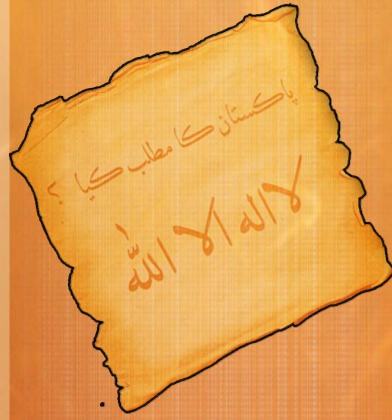 پاکستان کا مطلب کیا ؟
لا اله الا الله